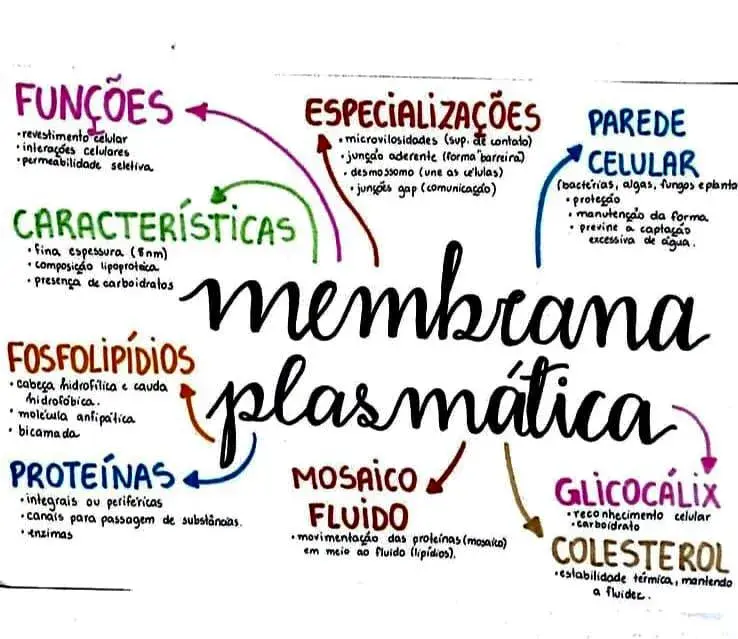 FUNÇÕES
• revestimento celular
• interações celulares
• permeabilidade seletiva
ESPECIALIZAÇÕES
• microvilosidades (sup. de contato)
• junção aderente (forma "barreira)
• desmossomo (une as células)
• junções gap (comunicação)
PAREDE
CELULAR
(bactérias, algas, fungos e planta
• proteção
• manutenção da forma
• previne a captação
excessiva de água.
CARACTERÍSTICAS
• fina espessura (8nm)
• composição lipoproteica
• presença de carboidratos
membrana
plasmática
FOSFOLIPÍDIOS
• cabeça hidrofílica e cauda
hidrofóbica.
• molécula anfipática
• bicamada
PROTEÍNAS
• integrais ou periféricas
• canais para passagem de substâncias.
• enzimas
MOSAICO
FLUIDO
• movimentação das proteínas (mosaico)
em meio ao fluido (lipídios).
GLICOCÁLIX
• reconhecimento celular
• carboidrato
COLESTEROL
• estabilidade térmica, mantendo
a fluidez.